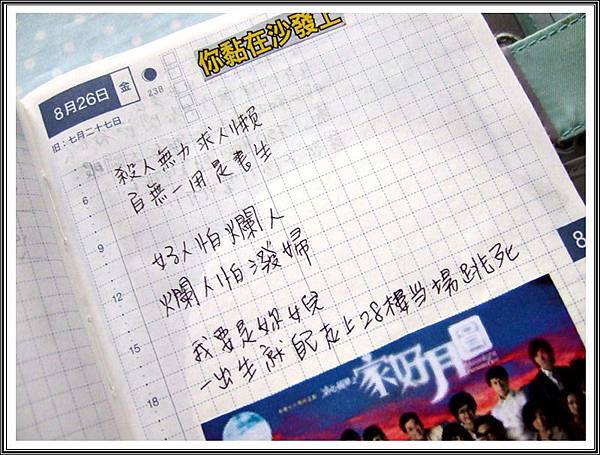 你黏在沙發上
8月26日 金
238
旧:七月二十七日
6
殺人無力求人懶
百無一用是書生
9
好人怕爛人
12
爛人怕潑婦
15
我要是妳女兒
一出生就自己走上28樓當場跳死
18
家好月圓
8